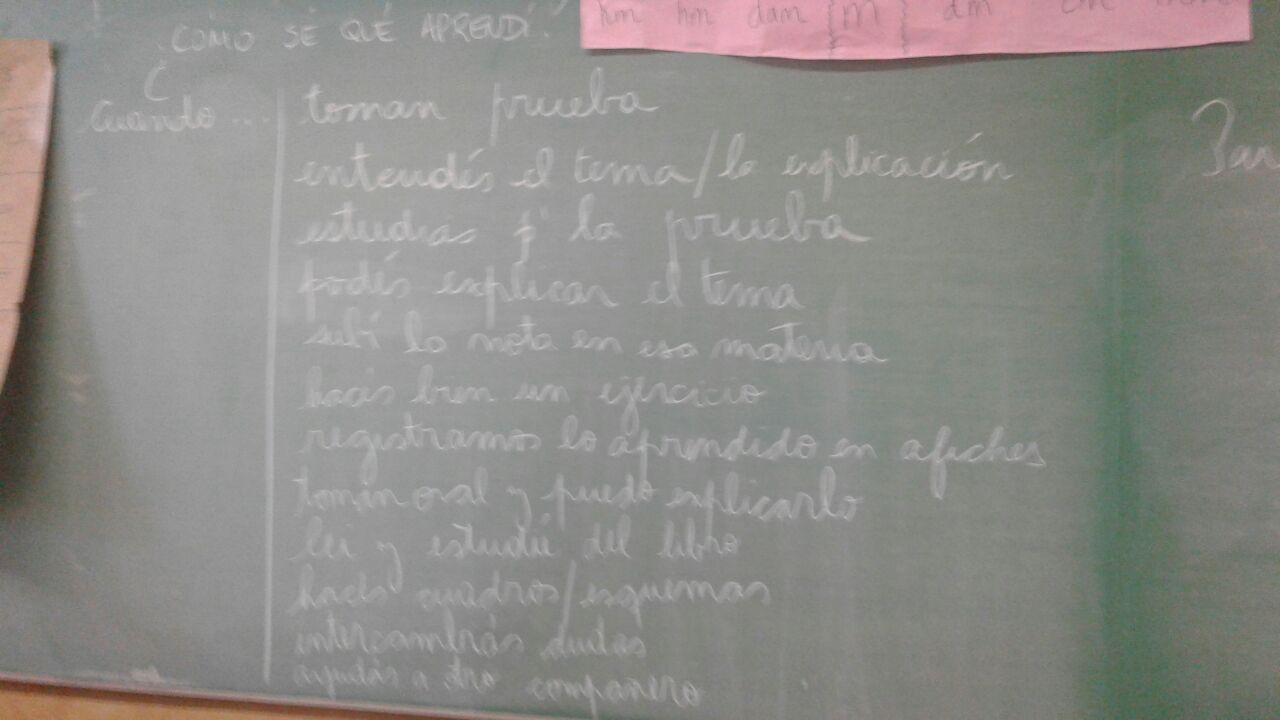 km hm dam m dm cm
¿CÓMO SÉ QUÉ APRENDÍ?
Cuando... toman prueba
entendés el tema/la explicación
estudias p' la prueba
podés explicar el tema
subí la nota en esa materia
hacés bien un ejercicio
registramos lo aprendido en afiches
toman oral y puedo explicarlo
leí y estudié del libro
hacés cuadros/esquemas
intercambiás dudas
ayudás a otro compañero